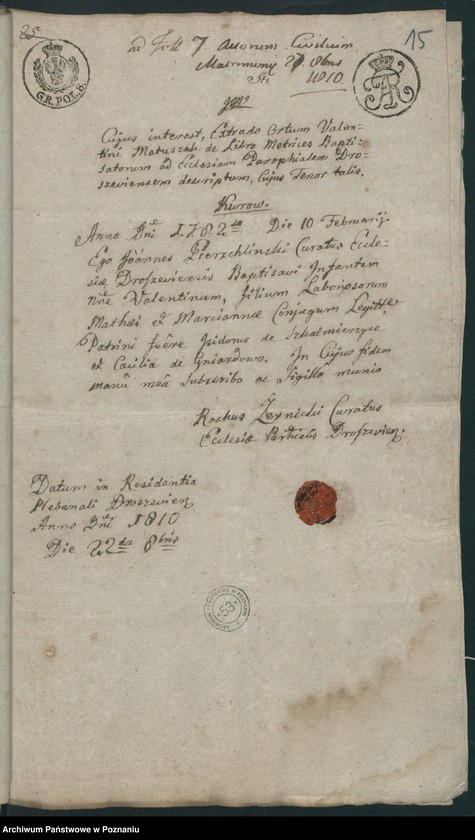 25
15
ad Foll 7 Actorum Civilium
Matrimony 27 8bris
1810.
GR.POL.8.
FA
Cujus interest, Extrado Ortum Valen-
tini Matuszak de Libro Metrices Bapti-
satorum ad Ecclesiam Parophialem Dro-
szeviensem descriptum, Cujus Tenor talis.
Kurow.
Anno Dni 1782do Die 10 Februarij.
Ego Joannes Pierzchlinski Curatus Eccle-
siæ Droszeviensis Baptisavi Infantem
nne Valentinum, filium Laboriosorum
Mathæi et Mariannæ Conjugum Legitt.
Patrini fuere Isidorus de Szkalmierzyce
et Cæcilia de Gniazdowo. In Cujus fidem
manu meâ Subscribo ac Sigillo munio
Rochus Zernicki Curatus
Ecclesiæ Droszevien.
Datum in Residentia
Plebanali Droszevien
Anno Dni 1810
Die 22da 8bris
ARCHIWUM PAŃSTWOWE W POZNANIU
·53·
Archiwum Państwowe w Poznaniu